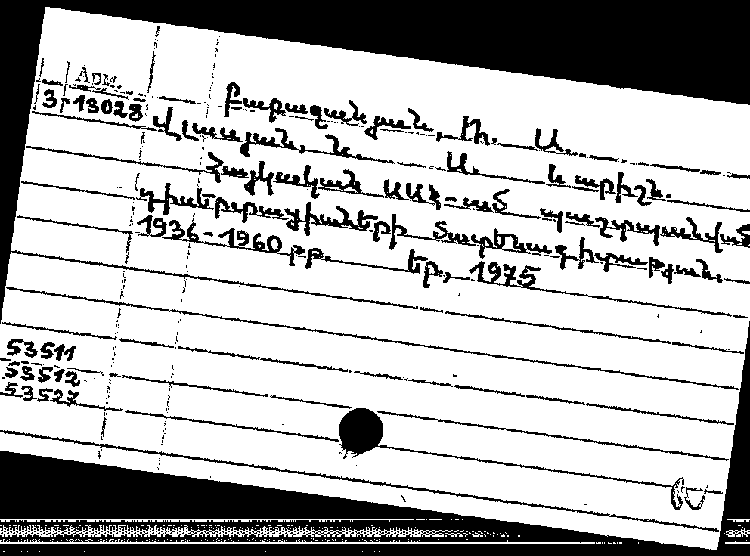 Арм.
3-13028
Բաբազանյան, Ռ. Ա.
Վլասյան, Ն. Ա. և ուրիշն.
Հայկական ՍՍՀ-ում պաշտպանված
դիսերտացիաների մատենագիտություն.
1936-1960 թթ. Եր., 1975
53511
53512
53527